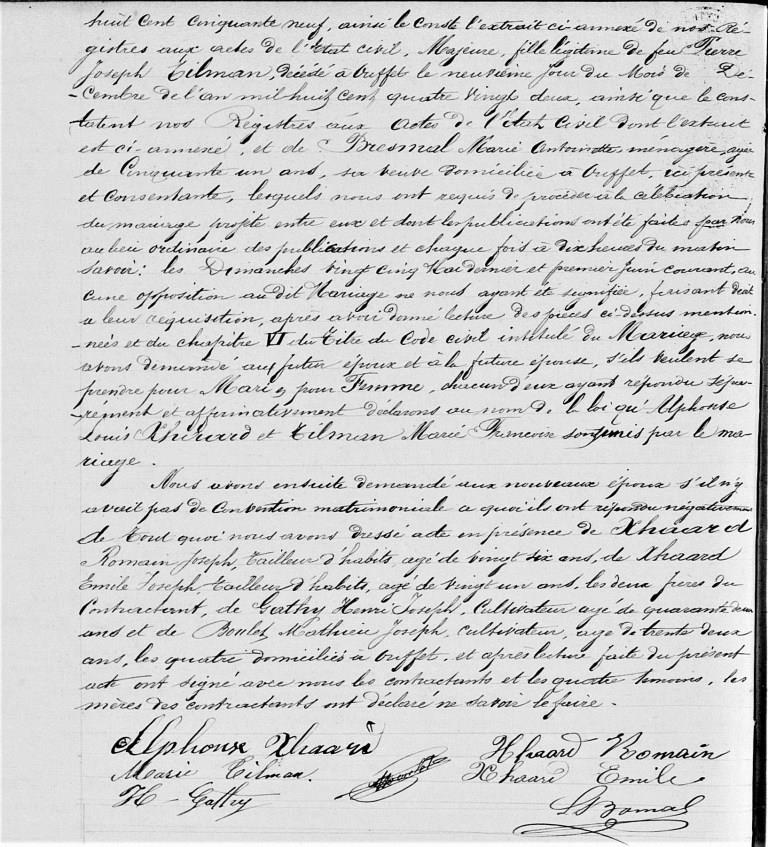 huit Cent Cinquante neuf, ainsi le Conste l'extrait ci-annexé de nos Ré-
gistres aux actes de l'Etat civil, Majeure, fille légitime de feu Pierre
Joseph Tilman, décédé à Ouffet le neuvième jour du Mois de De-
-Cembre de l'an mil huit Cent quatre Vingt deux, ainsi que le Cons-
tatent nos Registres aux Actes de l'Etat Civil dont l'extrait
est ci-annexé, et de Bresmal Marie Antoinette, ménagère, agée
de Cinquante un ans, sa veuve domiciliée à Ouffet, ici présente
et Consentante, lesquels nous ont requis de procéder à la célébration
du mariage projeté entre eux et dont les publications ont été faites par Nous
au lieu ordinaire des publications et chaque fois à dix heures du matin
Savoir: les Dimanches Vingt Cinq Mai dernier et premier Juin Courant, au
cune opposition au dit Mariage ne nous ayant été signifiée, faisant droit
a leur réquisition, après avoir donné lecture des pièces ci-dessus mention-
nées et du chapitre VI du Titre du Code Civil intitulé du Mariage, nous
avons demandé au futur époux et à la future épouse, s'ils veulent se
prendre pour Mari et pour Femme, chacun d'eux ayant répondu sépa-
-rément et affirmativement déclarons au nom de la loi qu'Alphonse
Louis Xhaard et Tilman Marie Françoise sont unis par le ma-
riage.
Nous avons ensuite demandé aux nouveaux époux s'il n'y
avait pas de Convention matrimoniale a quoi ils ont répondu négativement
de tout quoi nous avons dressé acte en présence de Xhaard
Romain Joseph, tailleur d'habits, agé de vingt six ans, de Xhaard
Emile Joseph, tailleur d'habits, agé de Vingt un ans, les deux frères du
Contractant, de Gathy Henri Joseph, Cultivateur agé de quarante deux
ans et de Boulet Mathieu Joseph, cultivateur, agé de trente deux
ans, les quatre domiciliés à Ouffet, et après lecture faite du présent
acte ont signé avec nous les contractants et les quatre temoins, les
mères des contractants ont déclaré ne savoir le faire.
Alphonse Xhaard Xhaard Romain
Marie Tilman. Xhaard Emile
H-Gathy